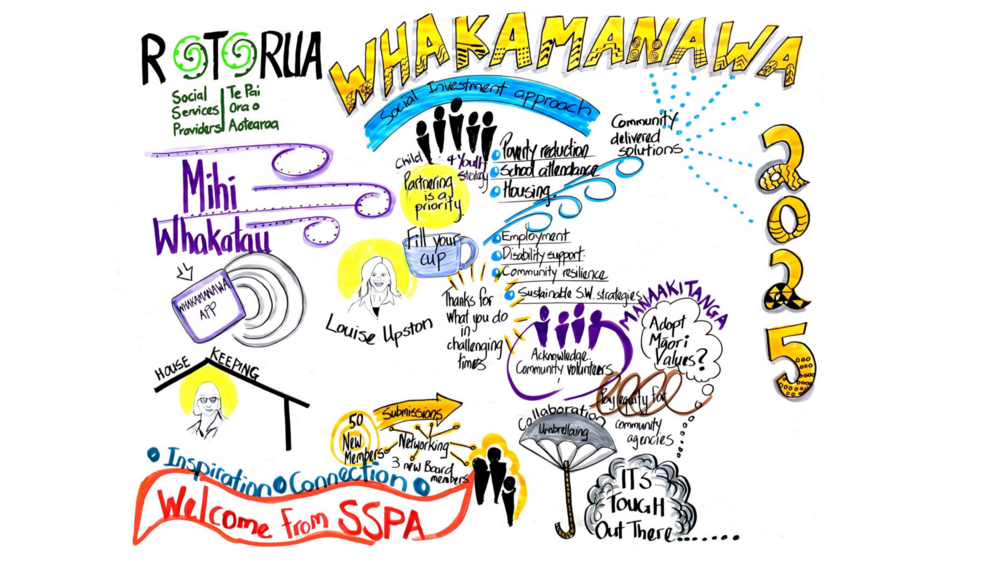 ROTORUA
WHAKAMANAWA
2025
Social
Services
Providers
Te Pai
Ora o
Aotearoa
Social Investment approach
Community
delivered
solutions
Child & Youth
Strategy
Poverty reduction
School attendance
Housing
Partnering
is a
priority
Mihi
Whakatau
Fill your
cup
Employment
Disability support
Community resilience
Sustainable S.W. strategies
WHAKAMANAWA
APP
Louise Upston
Thanks for
what you do
in
challenging
times
MANAAKITANGA
Adopt
Māori
Values?
Acknowledge
Community volunteers
HOUSE KEEPING
Pay equity for
community
agencies
Collaboration
Umbrellaing
50
New
Members
Submissions
Networking
3 new Board
members
Inspiration Connection
Welcome from SSPA
IT'S
TOUGH
Out There.......